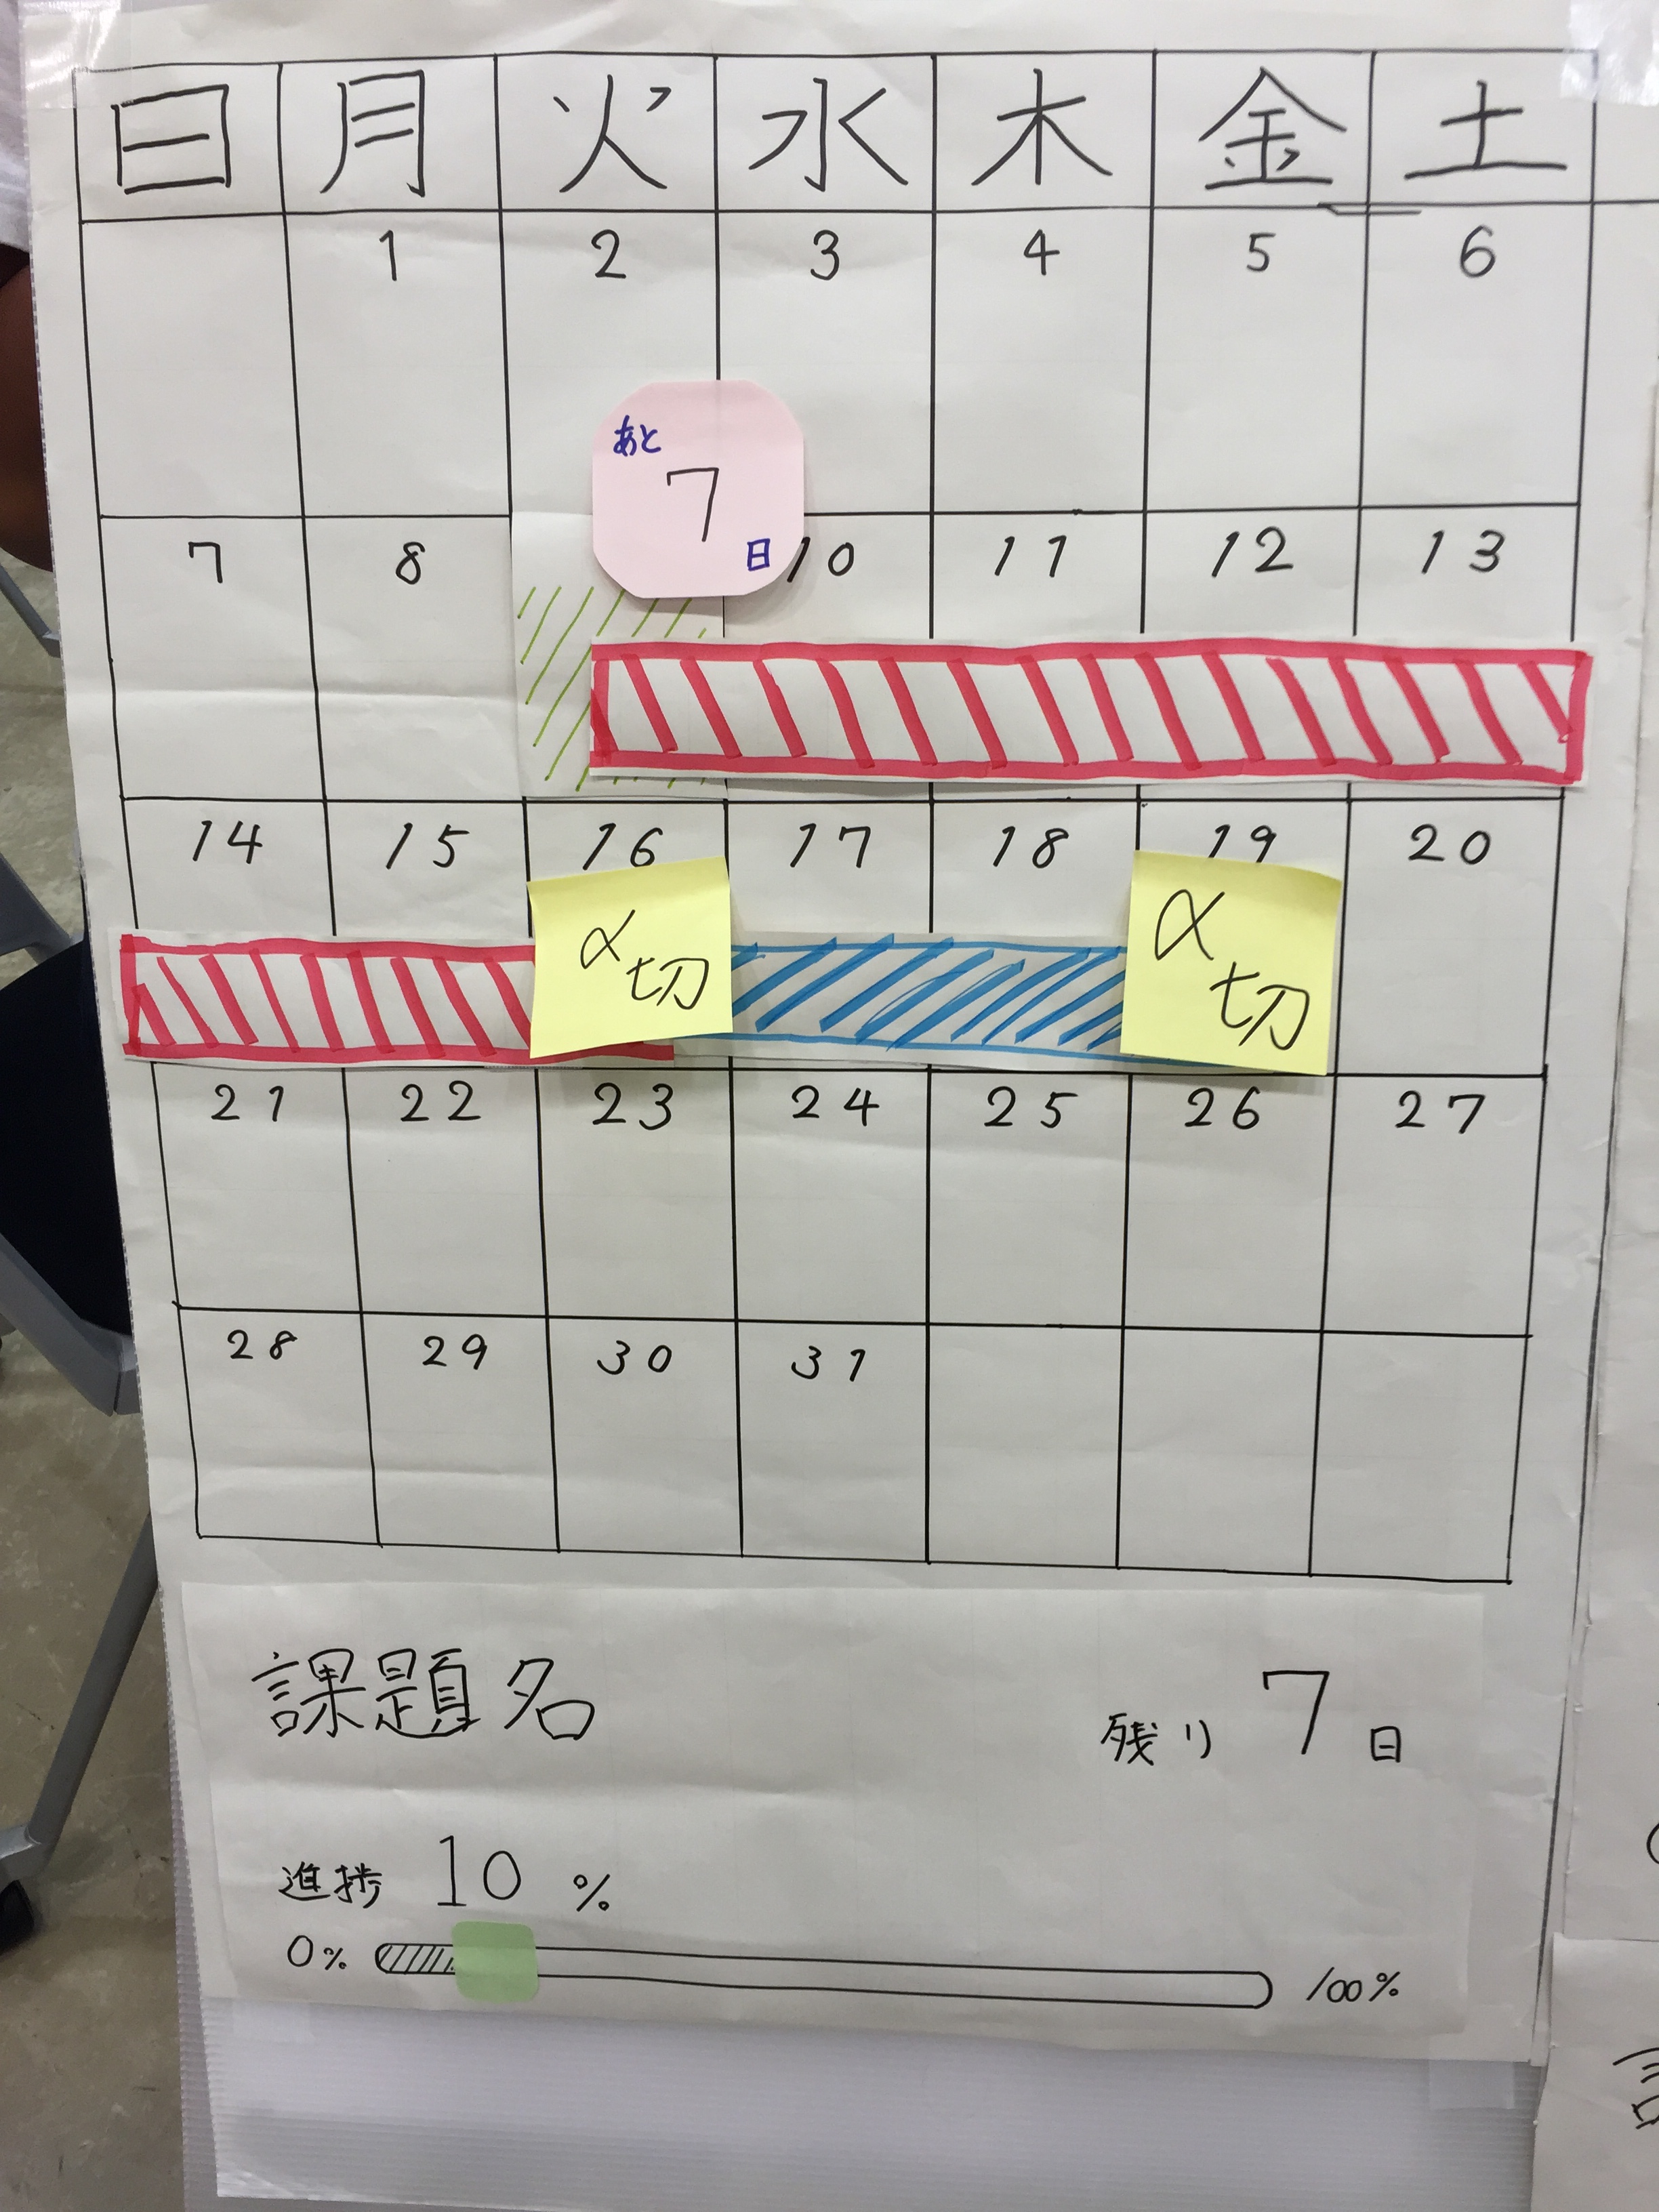 日 月 火 水 木 金 土
1 2 3 4 5 6
あと
7
日
7 8 10 11 12 13
14 15 16 17 18 19 20
〆切
〆切
21 22 23 24 25 26 27
28 29 30 31
課題名
残り 7 日
進捗 10 %
0% 100%